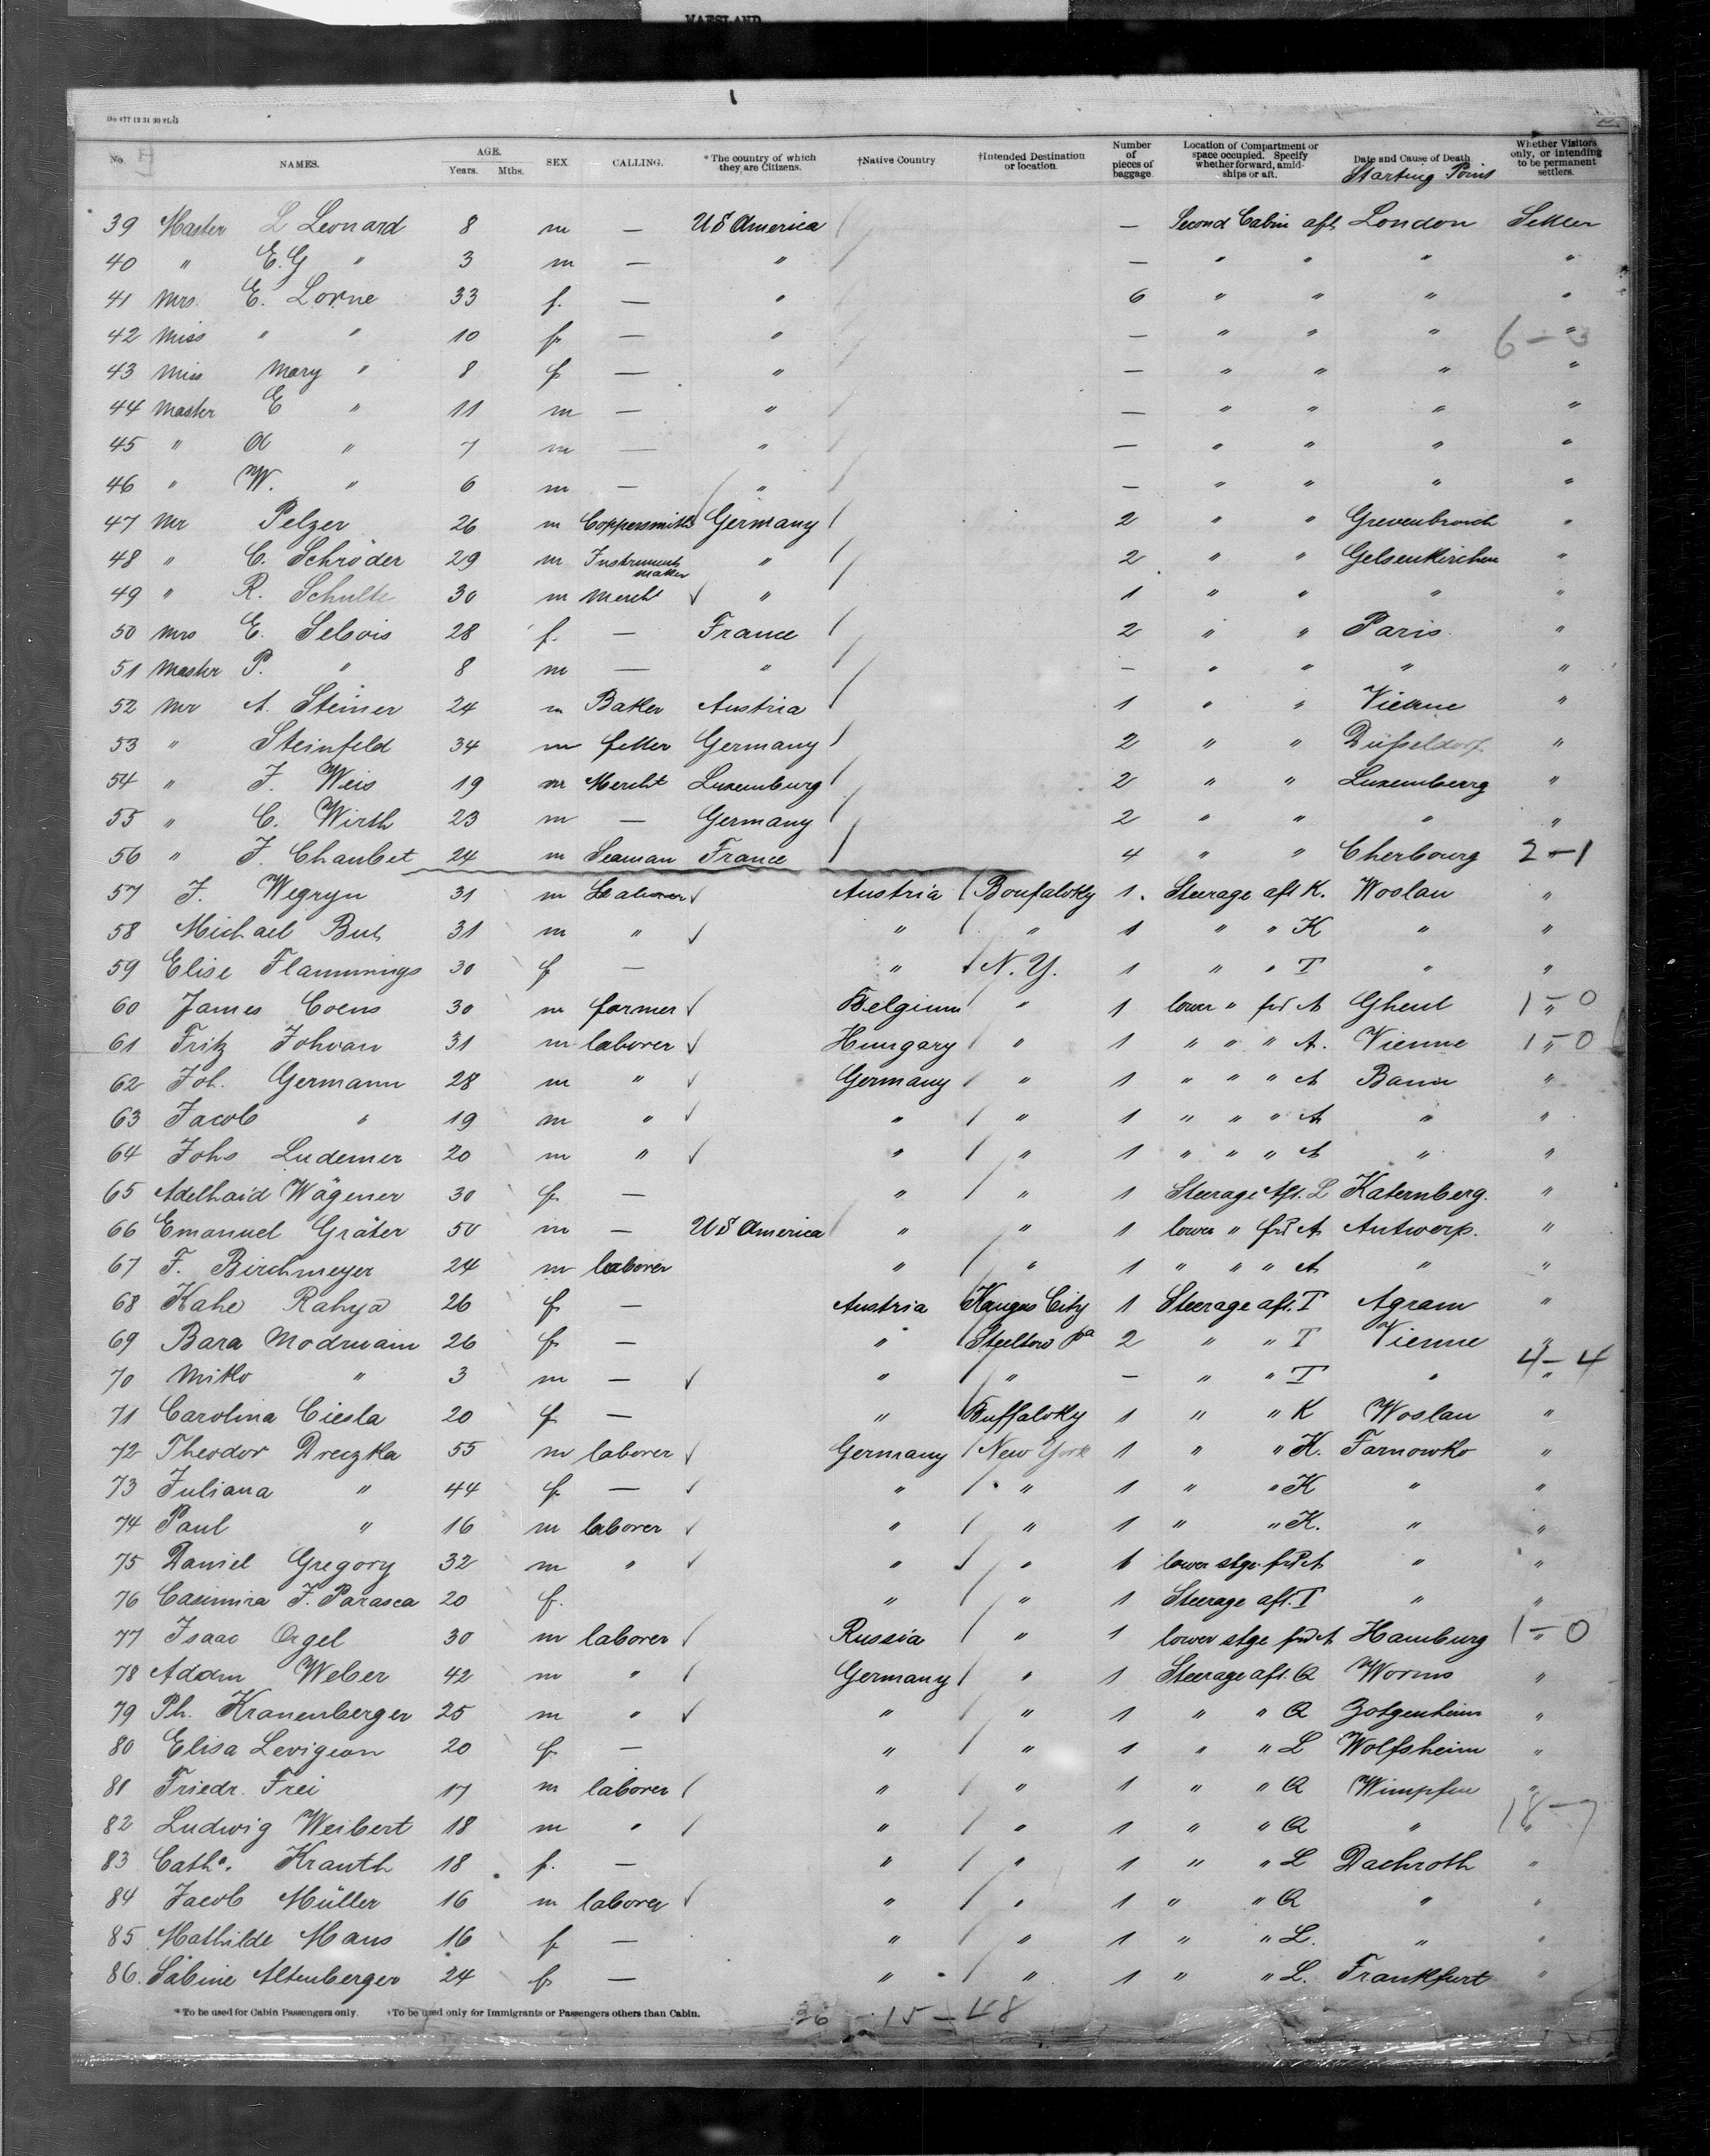 WAESLAND
No. NAMES. AGE. Years. Mths. SEX CALLING. *The country of which they are Citizens. †Native Country †Intended Destination or location. Number of pieces of baggage. Location of Compartment or space occupied. Specify whether forward, amidships or aft. Date and Cause of Death Starting Point Whether Visitors only, or intending to be permanent settlers.
39 Master L Leonard 8 m — US America — Second Cabin aft London Settler
40 " E.G " 3 m — " — " " " "
41 Mrs. E. Lorne 33 f. — " 6 " " " "
42 Miss " " 10 f — " — " " " " 6-3
43 Miss Mary " 8 f — " — " " " "
44 Master E " 11 m — " — " " " "
45 " A " 7 m — " — " " " "
46 " W. " 6 m — " — " " " "
47 Mr Pelzer 26 m Coppersmith Germany 2 " " Grevenbroich "
48 " C. Schröder 29 m Instrument maker " 2 " " Gelsenkirchen "
49 " R. Schulte 30 m Mercht " 1 " " " "
50 Mrs E. Selvois 28 f. — France 2 " " Paris "
51 Master P. " 8 m — " — " " " "
52 Mr A. Steiner 24 m Baker Austria 1 " " Vienne "
53 " Steinfeld 34 m fitter Germany 2 " " Düsseldorf "
54 " J. Weis 19 m Mercht Luxemburg 2 " " Luxemberg "
55 " C. Wirth 23 m — Germany 2 " " " "
56 " J. Chaubet 24 m Seaman France 4 " " Cherbourg 2-1
57 J. Wegryn 31 m Laborer Austria Boufaloky 1. Steerage aft K. Woslau "
58 Michael But 31 m " " " 1 " " K " "
59 Elise Flammings 30 f — " N.Y. 1 " " T " "
60 James Coens 30 m farmer Belgium " 1 lower " fwd A Ghent 1-0
61 Fritz Johvan 31 m laborer Hungary " 1 " " " A. Vienne 1-0
62 Joh. Germann 28 m " Germany " 1 " " " A "
63 Jacob " 19 m " " " 1 " " " A " "
64 Johs Ludemer 20 m " " " 1 " " " A " "
65 Adelhaid Wägener 30 f — " " 1 Steerage Aft. L Katernberg. "
66 Emanuel Gräter 50 m — US America " " 1 lower " fwd A Antwerp. "
67 F. Birchmeyer 24 m laborer " " 1 " " " A " "
68 Kahe Rahya 26 f — Austria Kangas City 1 Steerage aft. T Agram "
69 Bara Modrusain 26 f — " Steeltow Pa 2 " " T Vienne "
70 Mitko " 3 m — " " — " " T " 4-4
71 Carolina Ciesla 20 f — " Buffaloky 1 " " K Woslau "
72 Theodor Dreczka 55 m laborer Germany New York 1 " " K. Tarnowko "
73 Juliana " 44 f — " " 1 " " K " "
74 Paul " 16 m laborer " " 1 " " K. " "
75 Daniel Gregory 32 m " " " 1 lower stge fwd A " "
76 Casimira J. Parasca 20 f. " " 1 Steerage aft. T " "
77 Isaac Orgel 30 m laborer Russia " 1 lower stge fwd A Hamburg 1-0
78 Adam Weber 42 m " Germany " 1 Steerage aft. Q Worms "
79 Ph. Kranenberger 25 m " " " 1 " " Q Zotzenheim "
80 Elisa Levigeon 20 f — " " 1 " " L Wolfsheim "
81 Friedr. Frei 17 m laborer " " 1 " " Q Wimpfen "
82 Ludwig Weibert 18 m " " " 1 " " Q " 18-7
83 Cathe. Krauth 18 f. — " " 1 " " L Dachroth "
84 Jacob Müller 16 m laborer " " 1 " " Q " "
85 Mathilde Maus 16 f — " " 1 " " L. " "
86. Sabine Altenberger 24 f — " " 1 " " L. Frankfurt "
*To be used for Cabin Passengers only. †To be used only for Immigrants or Passengers others than Cabin.
26 - 15 - 48